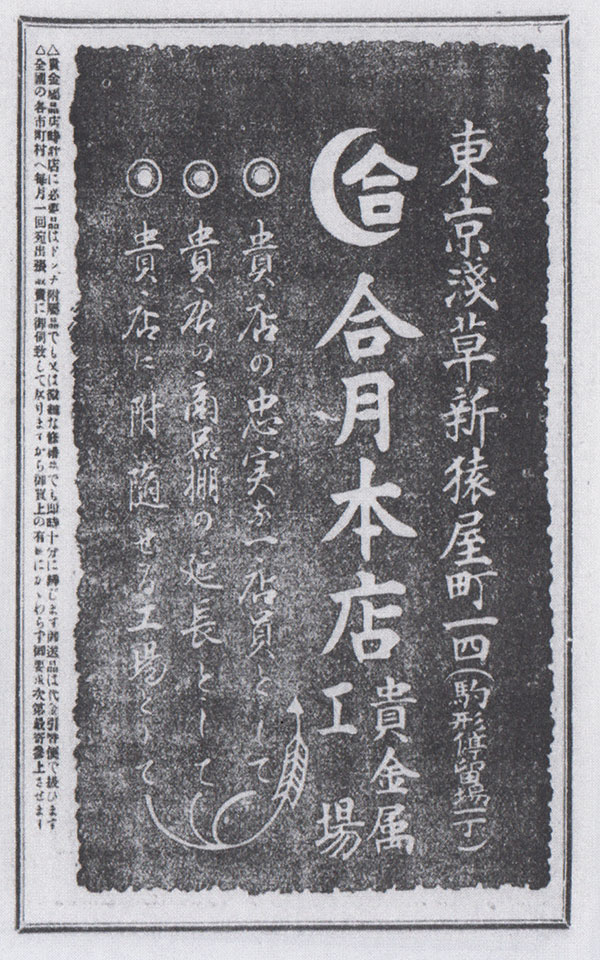 東京淺草新猿屋町一四(駒形停留場一丁)
合
合月本店
貴金属
工場
◎貴店の忠実な一店員として
◎貴店の商品棚の延長として
◎貴店に附随せる工場として
△貴金屬品店時計店に必要品はドンナ附屬品でも又は微細な修繕でも即時十分に辨じます御送品は代金引替便で扱ひます
△全國の各市町村へ毎月一回宛出張 に御伺致して居りますから御買上の有無にかゝわらず御要求次第最寄參上させます